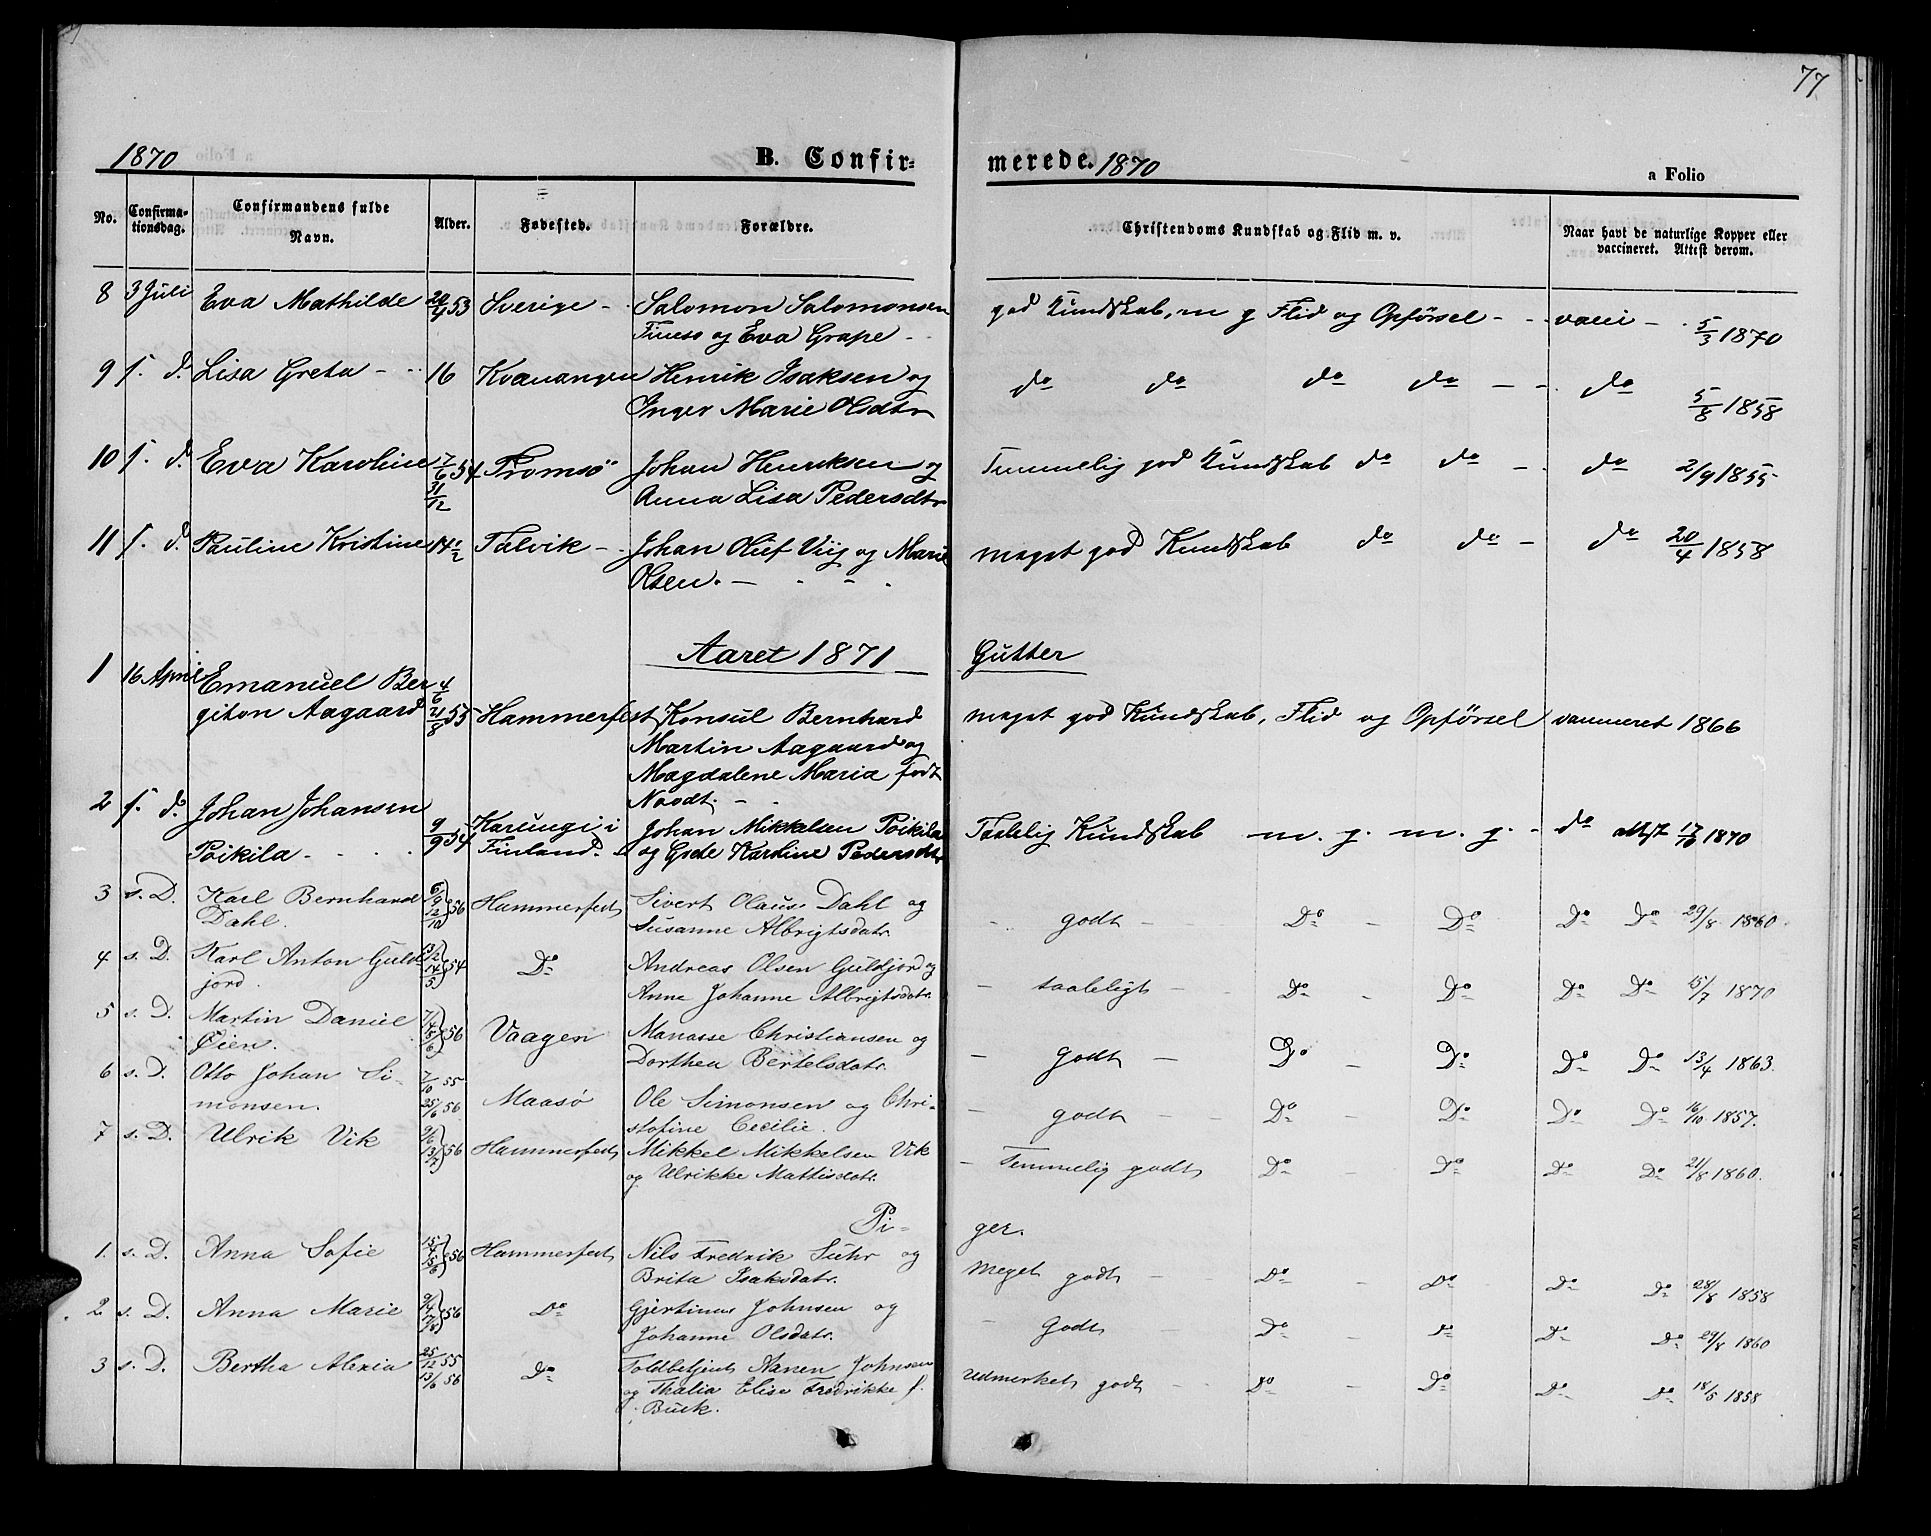 77
1870 B. Confir= merede. 1870 a Folio
No. Confirma-tionsdag. Confirmandens fulde Navn. Alder. Fødested. Forældre. Christendoms Kundskab og Flid m. v. Naar havt de naturlige Kopper eller vaccineret. Attest derom.
8 3 Juli Eva Mathilde 20/4 53 Sverige - Salomon Salomonsen god Kundskab, m g Flid og Opførsel - - vacci - 5/3 1870
og Eva Grape -
9 s. d. Lisa Greta - 16 Kvænangen Henrik Isaksen og do do do do - - do 5/8 1858
Inger Marie Olsdtr
10 s. d. Eva Karoline 7/6 54 Tromsø Johan Henriksen og Temmelig god Kundskab do do - do 2/9 1855
31/12 Anna Lisa Pedersdtr
11 s. d. Pauline Kristine 14 1/2 Talvik - Johan Oluf Viig og Marie meget god Kundskab do do - do 20/4 1858
Olsen. - - - -
Aaret 1871 Gutter
1 16 April Emanuel Ber 4/6
giton Aagaard 21/8 55 Hammerfest Konsul Bernhard meget god Kundskab, Flid og Opførsel 1866
Martin Aagaard og
Magdalene Maria født
Noodt. -
2 s. d. Johan Johansen
Poikila - - - 9/9 54 Karungi i Finland. Johan Mikkelsen Poikila Taalelig Kundskab m. g. m. g. - do attest 17/ 1870
og Karoline Pedersdtr
3 s. D. Karl Bernhard 6/9 12/10 56 Hammerfest Sivert Olaus Dahl og - godt - Do - Do Do Do 29/8 1860.
Dahl. Susanne Albrigtsdatr.
4 s. D. Karl Anton Guld 13/2 14/5 54 Do Andreas Olsen Guldjord og - taaleligt - Do - Do Do Do 15/7 1870
jord. Anne Johanne Albrigtsdatr.
5 s. D. Martin Daniel 7/4 8/6 56 Vaagen Manasse Christiansen og - godt - Do - Do Do Do 13/4 1863.
Øien. Dorthea Bertelsdatr.
6 s. D. Otto Johan Si- 7/10 55 Maasø Ole Simonsen og Chri- - godt - Do - Do Do Do 16/10 1857.
monsen. 25/6 56 stofine Cecilie.
7 s. D. Ulrik Vik 9/6 13/7 56 Hammerfest Mikkel Mikkelsen Vik - Temmelig godt Do - Do Do Do 21/8 1860.
og Ulrikke Mattisdatr.
Pi- ger.
1. s. D. Anna Sofie 15/4 15/6 56 Hammerfest Nils Fredrik Suhr og Meget godt - Do - Do Do Do 28/8 1858
Brita Isaksdatr.
2 s. D. Anna Marie 9/4 17/8 56 Do Gjertinus Johnsen og - Godt - Do - Do Do Do 29/8 1860
Johanne Olsdatr.
3 s. D. Bertha Alexia 25/12 55 Do Toldbetjent Hanen Johnsen Udmerket godt - Do - Do Do Do 18/5 1858
13/6 56 og Thalia Elise Fredrikke f.
Buck.